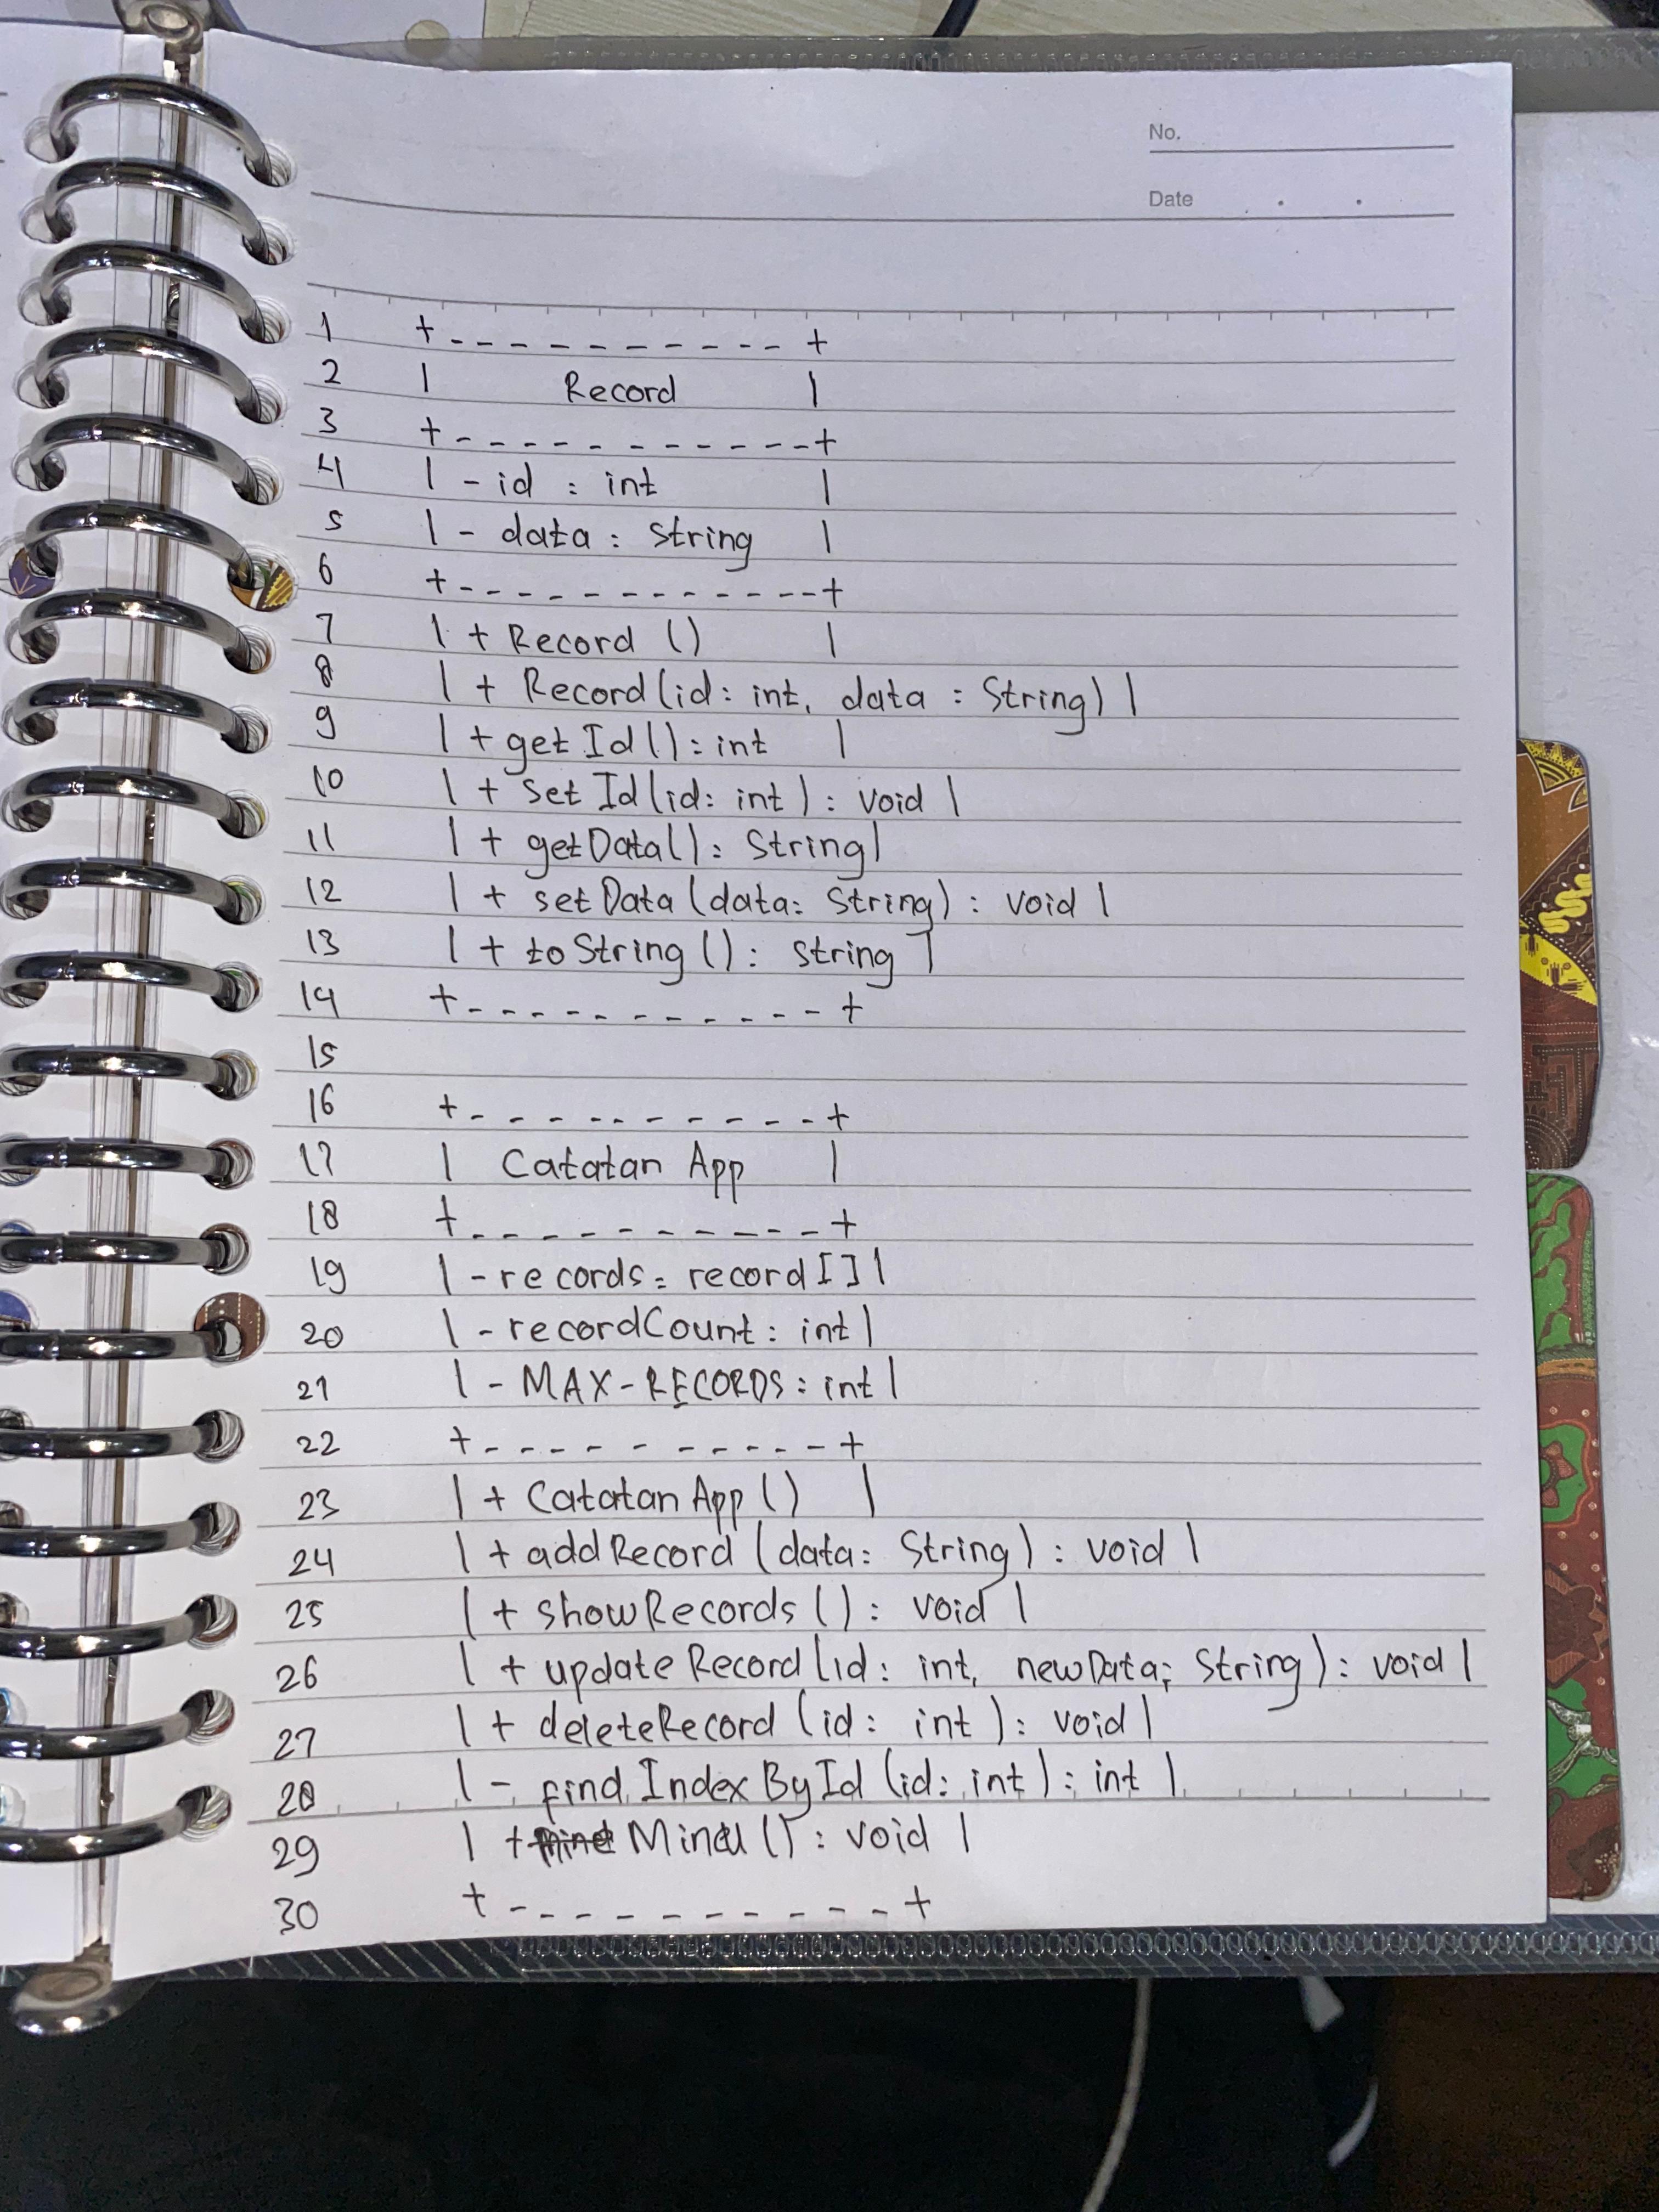 No.
Date
1 +-----------+
2 | Record |
3 +-----------+
4 | - id : int |
5 | - data : string |
6 +------------+
7 | + Record () |
8 | + Record (id: int, data : String) |
9 | + getId() : int |
10 | + setId (id: int) : void |
11 | + getData() : String |
12 | + setData (data: String) : void |
13 | + toString () : string |
14 +-----------+
15
16 +----------+
17 | Catatan App |
18 +----------+
19 | - records : record [] |
20 | - recordCount : int |
21 | - MAX-RECORDS : int |
22 +----------+
23 | + Catatan App () |
24 | + addRecord (data: String) : void |
25 | + showRecords () : void |
26 | + updateRecord (id: int, newData; String) : void |
27 | + deleteRecord (id: int) : void |
28 | - findIndexById (id: int) : int |
29 | + () : void |
30 +----------+